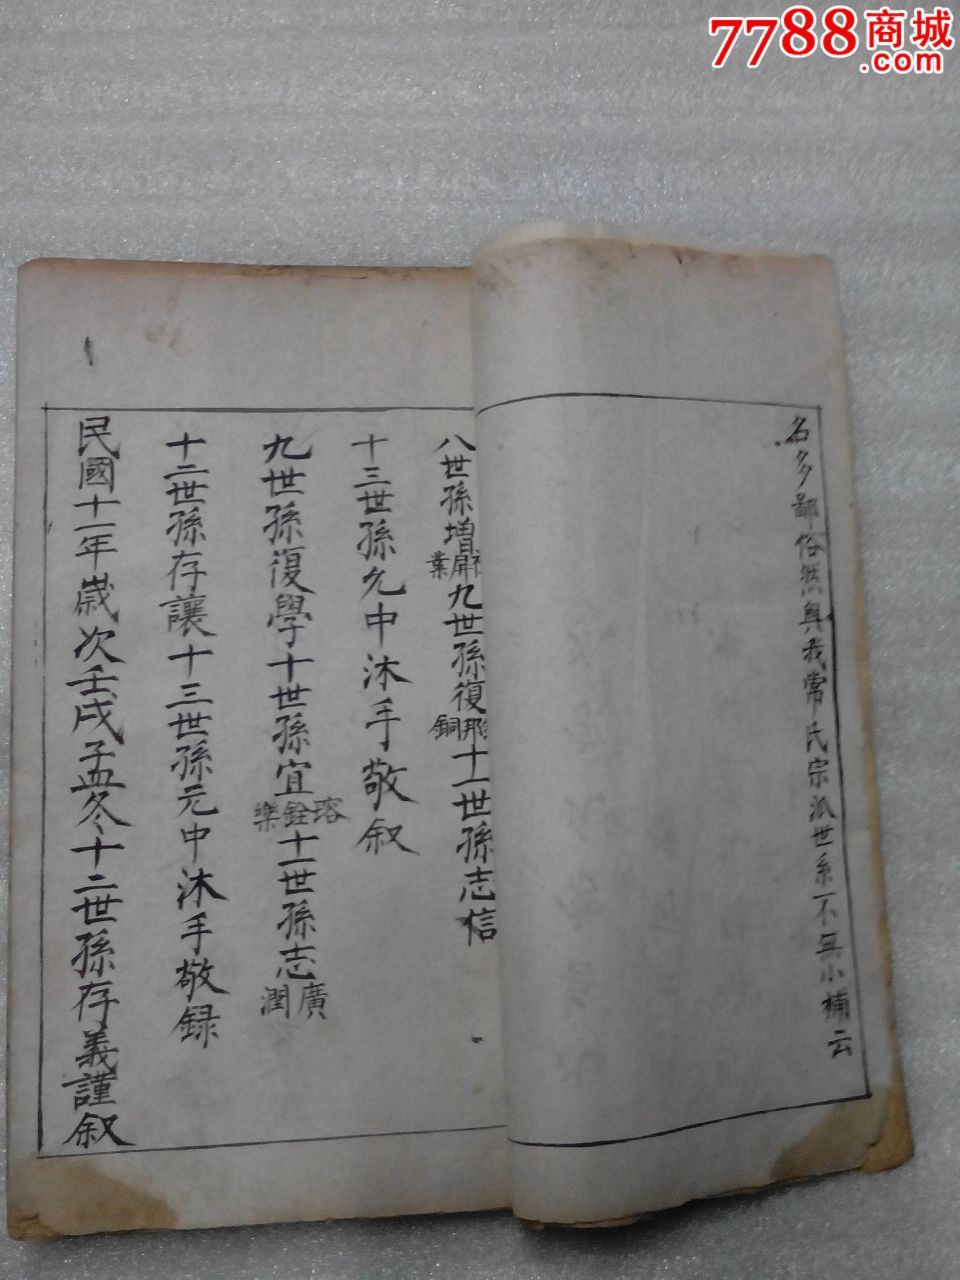 7788商城
.com
名多鄙俗然與我常氏宗派世系不無小補云
八世孫增 屏業九世孫復 那銅十一世孫志信
十三世孫允中沐手敬叙
九世孫復學十世孫宜瑢銓樂十一世孫志廣潤
十二世孫存讓十三世孫元中沐手敬録
民國十一年歲次壬戌孟冬十二世孫存義謹叙